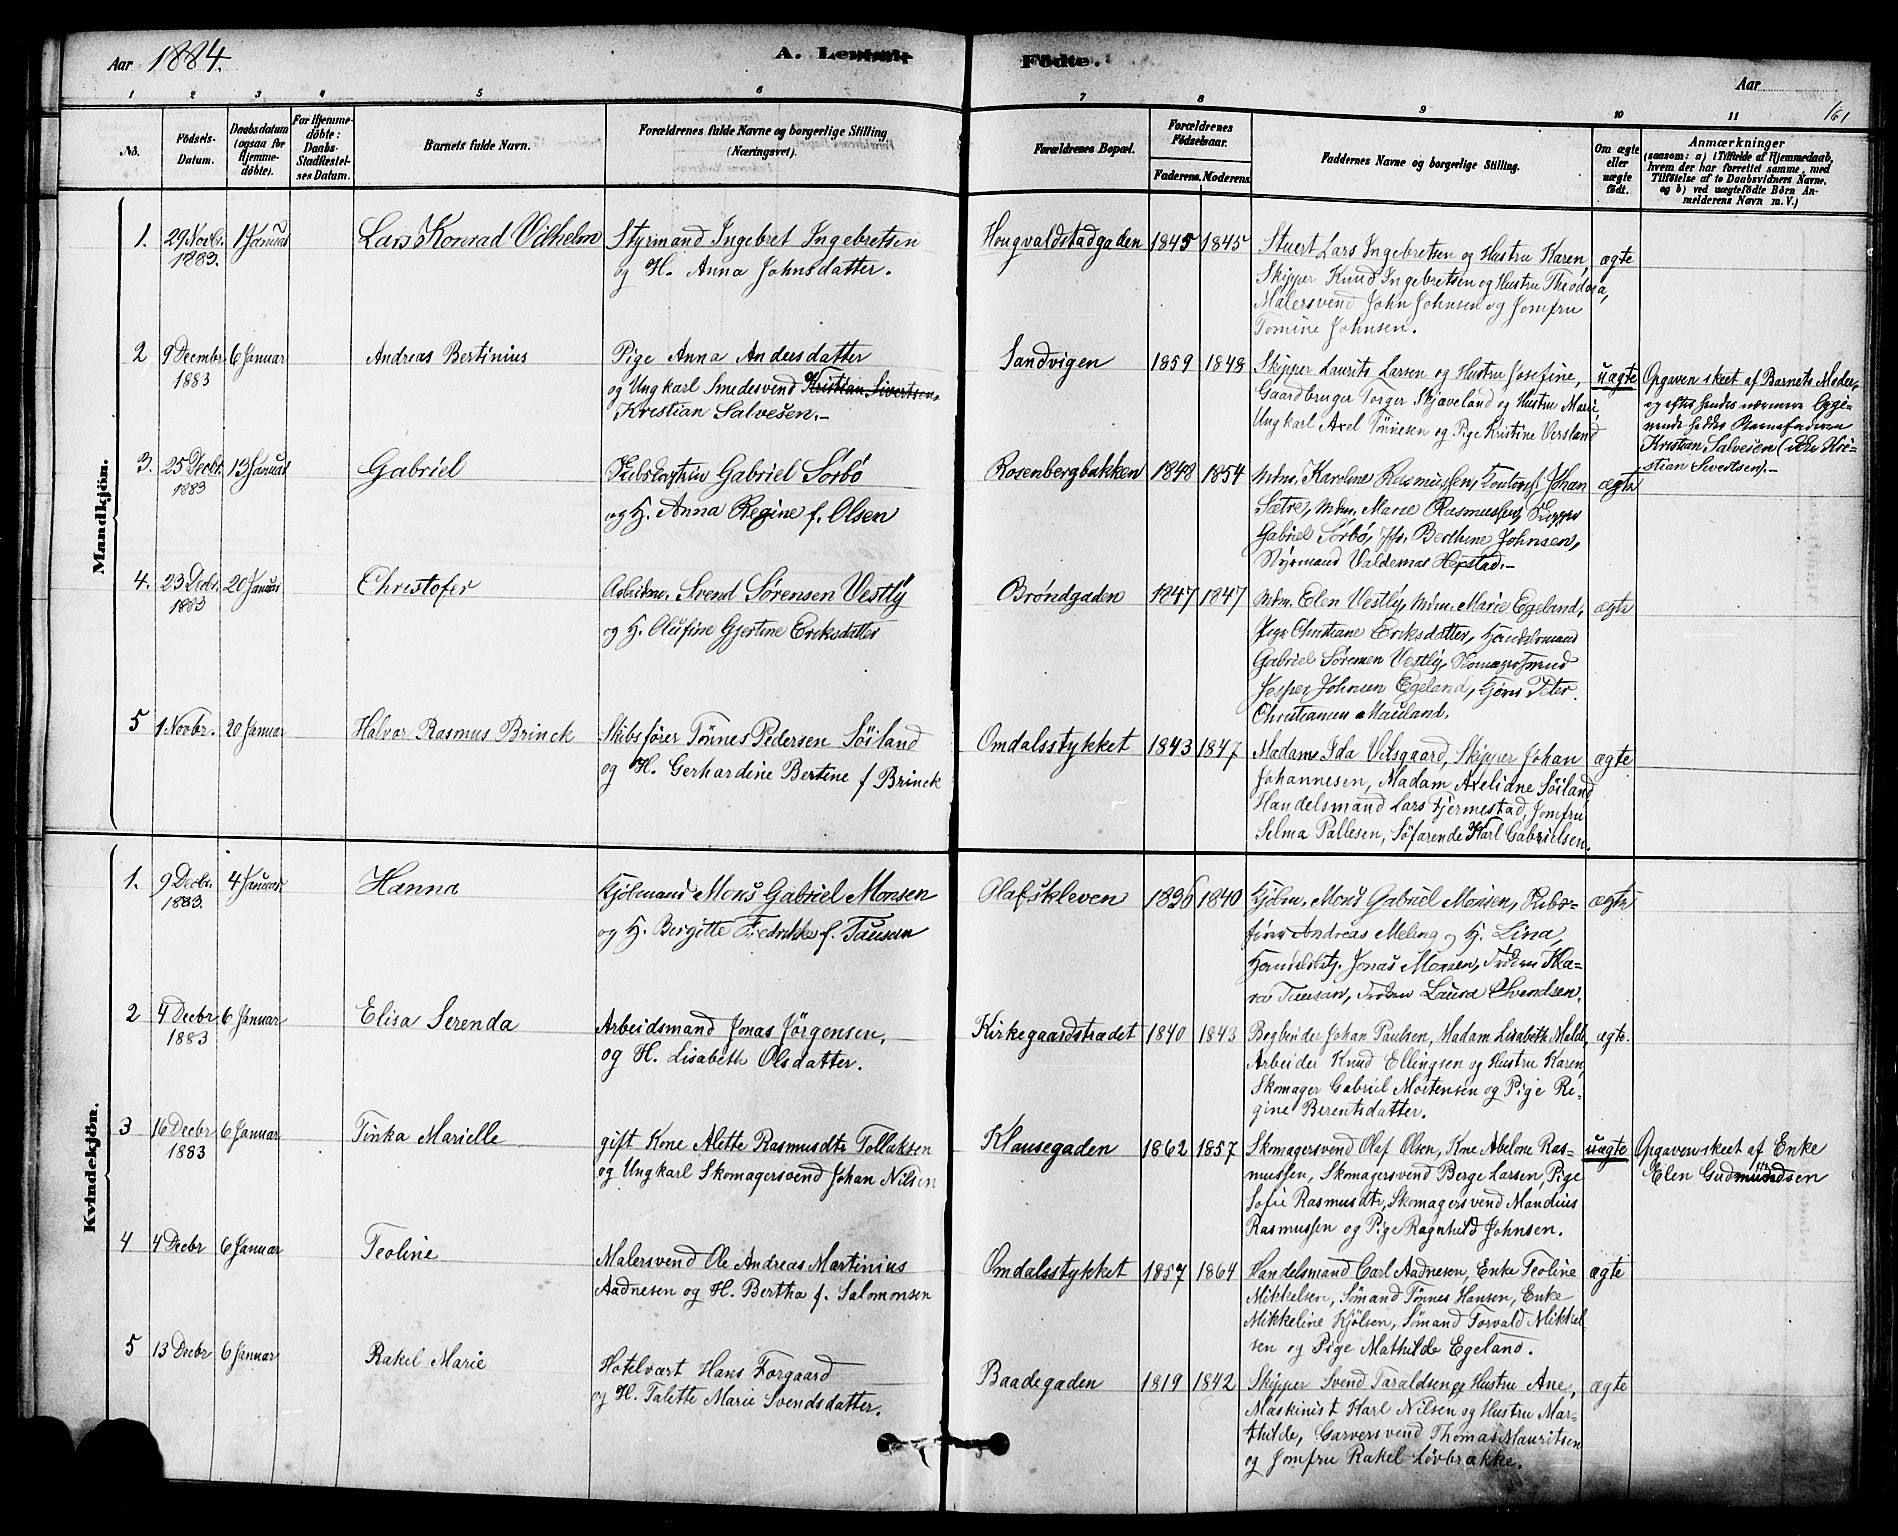 Aar 1884.
A. Levende Födte.
Aar
161
1 2 3 4 5 6 7 8 9 10 11
No.
Födsels-Datum.
Daabsdatum (ogsaa for Hjemmedöbte).
For Hjemmedöbte: Daabs-Stadfestelses Datum.
Barnets fulde Navn.
Forældrenes fulde Navne og borgerlige Stilling (Næringsvei).
Forældrenes Bopæl.
Forældrenes Födselsaar.
Faderens. Moderens.
Faddernes Navne og borgerlige Stilling.
Om ægte eller uægte födt.
Anmærkninger (saasom: a) i Tilfælde af Hjemmedaab, hvem der har forrettet samme, med Tilföielse af to Daabsvidners Navne, og b) ved uægtefödte Börn Anmelderens Navn m. V.)
Mandkjön.
1. 29 Novbr. 1883. 1 Januar Lars Konrad Vilhelm
Styrmand Ingebret Ingebretsen
og H. Anna Johnsdatter.
Hougvaldstadgaden 1845 1845
Stuert Lars Ingebretsen og Hustru Karen,
Skipper Knud Ingebretsen og Hustru Theodora,
Malersvend John Johnsen og Jomfru
Tomine Johnsen.
ægte
2 9 Decembr 1883 6 Januar Andreas Bertinius
Pige Anna Andersdatter
og Ungkarl Smedesvend Kristian Sivertsen,
Kristian Salvesen.-
Sandvigen 1859 1848
Skipper Laurits Larsen og Hustru Josefine,
Gaardbruger Torger Skjæveland og Hustru Marie,
Ungkarl Axel Tönnesen og Pige Kristine Versland
uægte
Opgaven skeet af Barnets Moder,
og efter hendes nærmere Opgivende hedder Barnefaderen
Kristian Salvesen (ikke Kristian Sivertsen).-
3. 25 Decbr. 1883 13 Januar Gabriel
Gabriel Sörbö
og H. Anna Regine f. Olsen
Rosenbergbakken 1848 1854
Mdm. Karoline Rasmussen, Kontorist Johan
Sætre, Mdm. Marie Rasmussen, Skipper
Gabriel Sörbö, Jfr. Berthine Johnsen,
Styrmand Valdemar Hepstad.-
ægte
4. 23 Decbr. 1883 20 Januar Christofer
Arbeidsm. Svend Sörensen Vestly
og H. Olufine Gjertine Eriksdatter
Bröndgaden 1847 1847
Mdm. Elen Vestly, Mdm. Marie Egeland,
Pige Christiane Eriksdatter, Handelsmand
Gabriel Sörensen Vestly, Skomagersvend
Jesper Johnsen Egeland, Peter
Christiansen Mauland.
ægte
5 1 Novbr. 20 Januar Halvor Rasmus Brinck
Skibsförer Tönnes Pedersen Söiland
og H. Gerhardine Bertine f Brinck
Omdalsstykket 1843 1847
Madam Ida Vilsgaard, Skipper Johan
Johannesen, Madam Axelidne Söiland,
Handelsmand Lars Hjermestad, Jomfru
Selma Pallesen, Söfarende Karl Gabrielsen.
ægte
Kvindekjön.
1. 9 Decbr. 1883. 4 Januar Hanna
Kjöbmand Mons Gabriel Monsen
og H. Birgitte Fredrikke f. Tausan
Olafskleven 1836 1840
Kjöbm. Mons Gabriel Monsen, Skibsförer
Andreas Meling og H. Lina,
Handelsbetj. Jonas Monsen, Fröken Klara
Tausan, Fröken Laura Svendsen.
ægte
2 4 Decbr 1883 6 Januar Elisa Serenda
Arbeidsmand Jonas Jörgensen,
og H. Lisabeth Olsdatter.
Kirkegaardstrædet 1840 1843
Begbinder Johan Paulsen, Madam Lisabeth Malde,
Arbeider Knud Ellingsen og Hustru Karen,
Skomager Gabriel Mortensen og Pige Regine
Berentsdatter.
ægte.
3 16 Decbr 1883 6 Januar Tinka Marielle
gift Kone Alette Rasmusdtr Tollaksen
og Ungkarl Skomagersvend Johan Nilsen
Klausegaden 1862 1857
Skomagersvend Olaf Olsen, Kone Abelone Rasmussen,
Skomagersvend Berge Larsen, Pige
Sofie Rasmusdtr, Skomagersvend Mandius
Rasmussen og Pige Ragnhild Johnsen.
uægte
Opgaven skeet af Enke
Elen Gudmundsen
4 4 Decbr 6 Januar Teoline
Malersvend Ole Andreas Martinius
Aadnesen og H. Bertha f. Salomonsen
Omdalsstykket 1857 1864
Handelsmand Carl Aadnesen, Enke Teoline
Mikkelsen, Sömand Tönnes Hansen, Enke
Mikkeline Kjölsen, Sömand Torvald Mikkelsen
og Pige Mathilde Egeland.
ægte
5 13 Decbr 6 Januar Rakel Marie
Hotelvært Hans Forgaard
og H. Talette Marie Svendsdatter.
Baadegaden 1819 1842
Skipper Svend Taraldsen og Hustru Ane,
Maskinist Karl Nilsen og Hustru Marthilde,
Garversvend Thomas Mauritsen
og Jomfru Rakel Lövbrække.
ægte